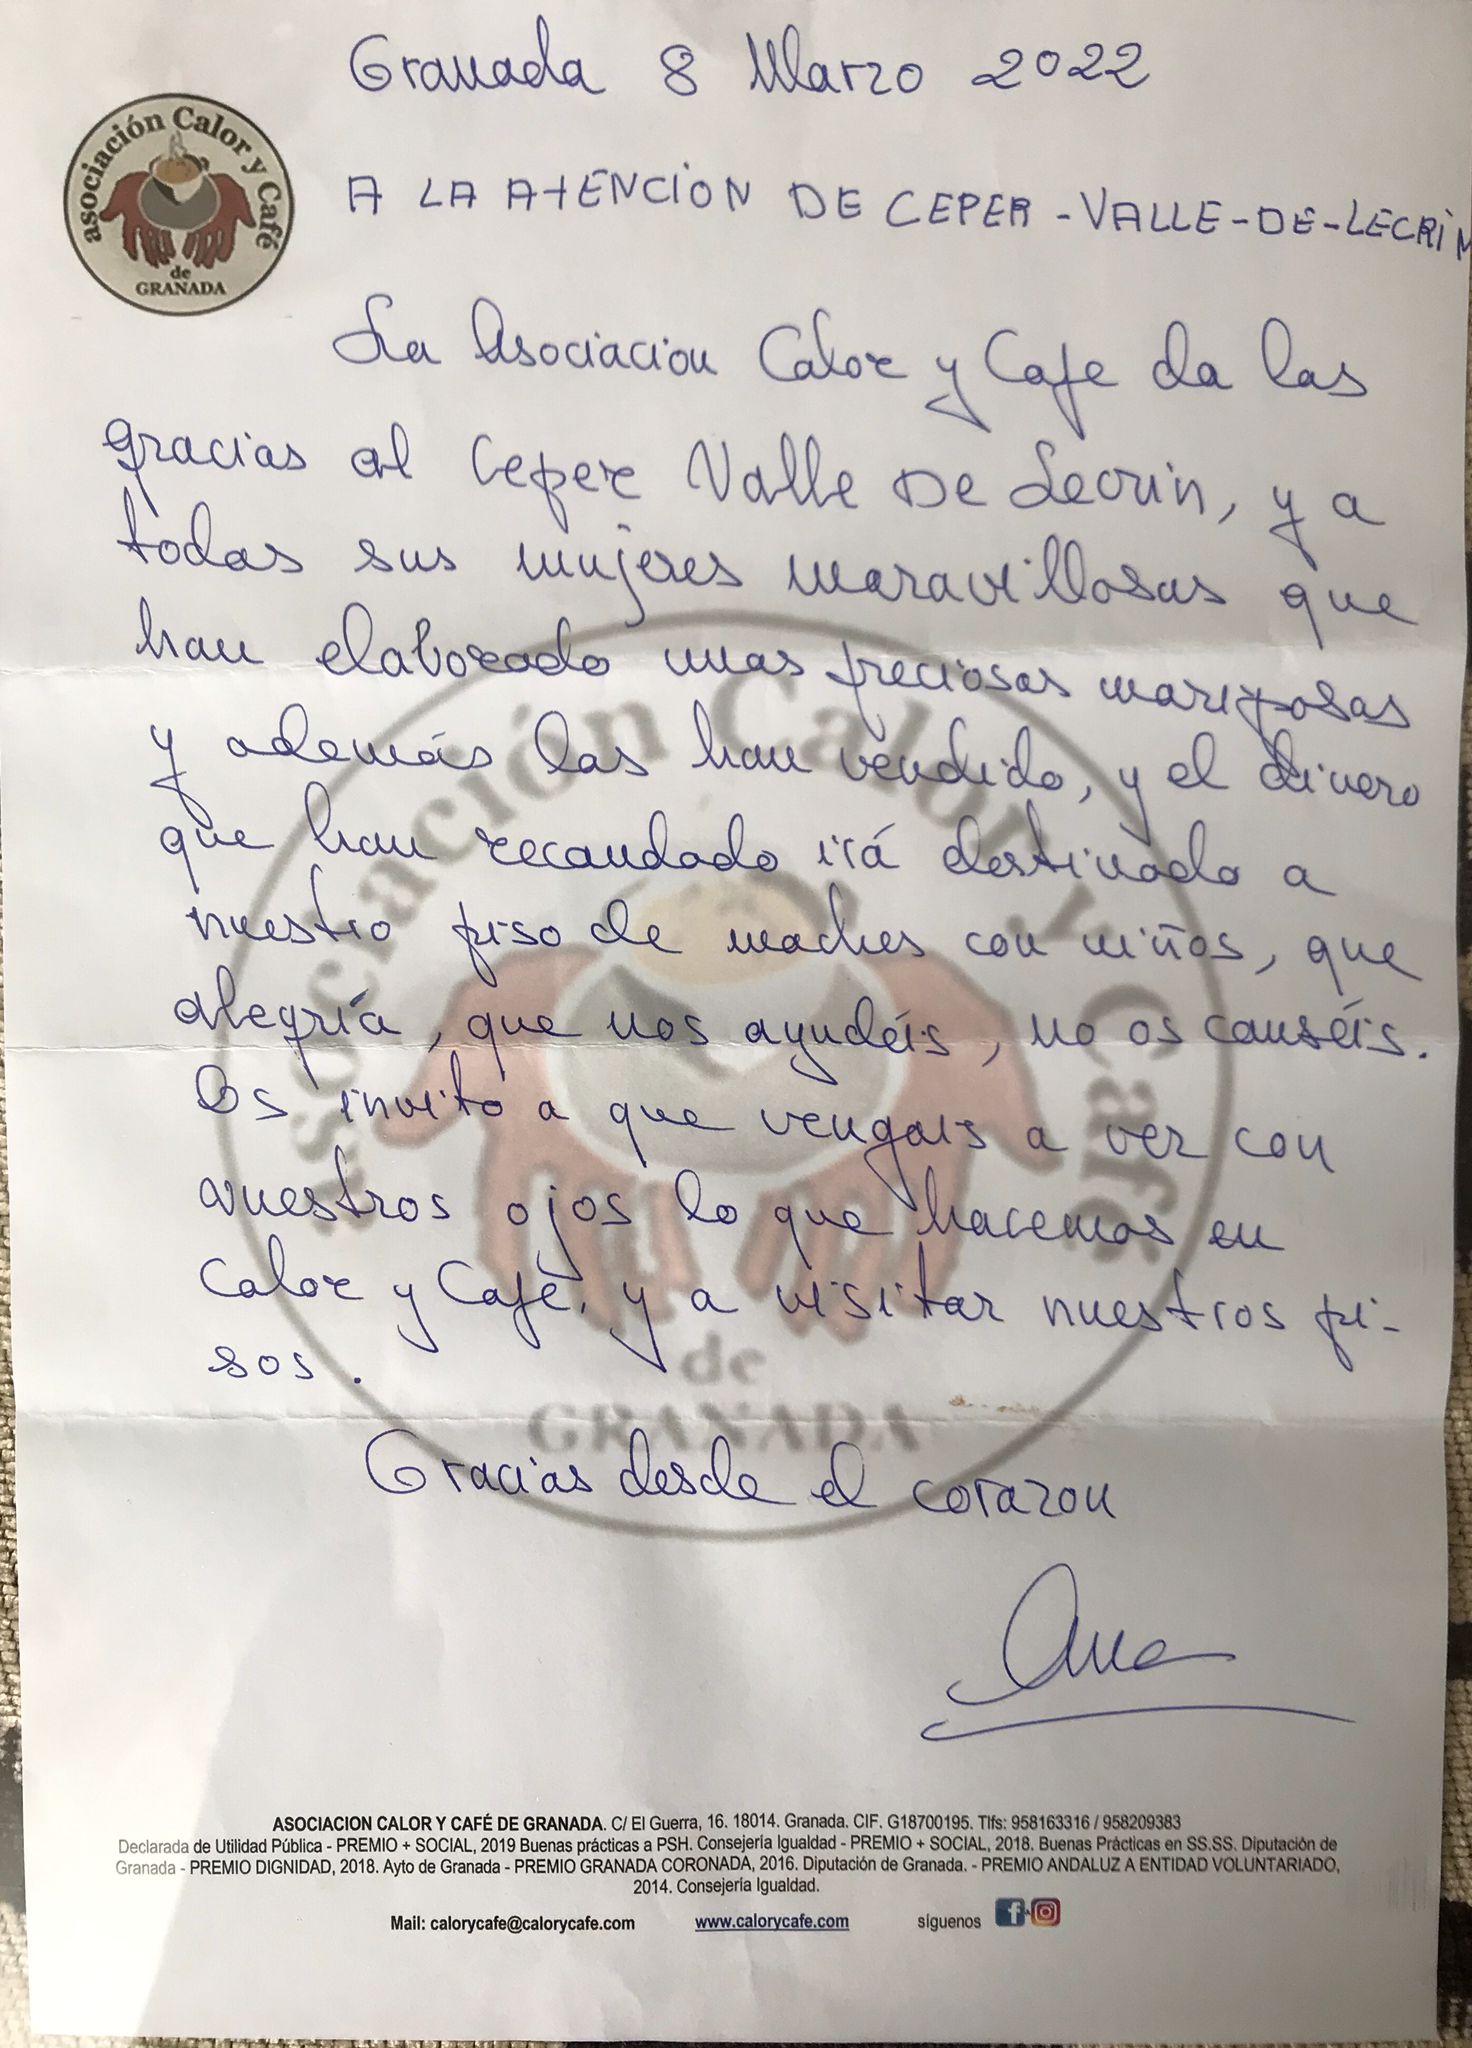 Granada 8 Marzo 2022
asociación Calor y Café
de
GRANADA
A LA ATENCION DE CEPER-VALLE-DE-LECRIN
La Asociacion Calor y Cafe da las
gracias al Ceper Valle De Lecrin, y a
todas sus mujeres maravillosas que
han elaborado unas preciosas mariposas
y además las han vendido, y el dinero
que han recaudado irá destinado a
nuestro piso de madres con niños, que
alegría, que nos ayudéis, no os canséis.
Os invito a que vengais a ver con
vuestros ojos lo que hacemos en
Calor y Café, y a visitar nuestros pi-
sos.
Gracias desde el corazon
Ana
asociación Calor y Café
de
GRANADA
ASOCIACION CALOR Y CAFÉ DE GRANADA. C/ El Guerra, 16. 18014. Granada. CIF. G18700195. Tlfs: 958163316 / 958209383
Declarada de Utilidad Pública - PREMIO + SOCIAL, 2019 Buenas prácticas a PSH. Consejería Igualdad - PREMIO + SOCIAL, 2018. Buenas Prácticas en SS.SS. Diputación de
Granada - PREMIO DIGNIDAD, 2018. Ayto de Granada - PREMIO GRANADA CORONADA, 2016. Diputación de Granada. - PREMIO ANDALUZ A ENTIDAD VOLUNTARIADO,
2014. Consejería Igualdad.
Mail: calorycafe@calorycafe.com www.calorycafe.com síguenos